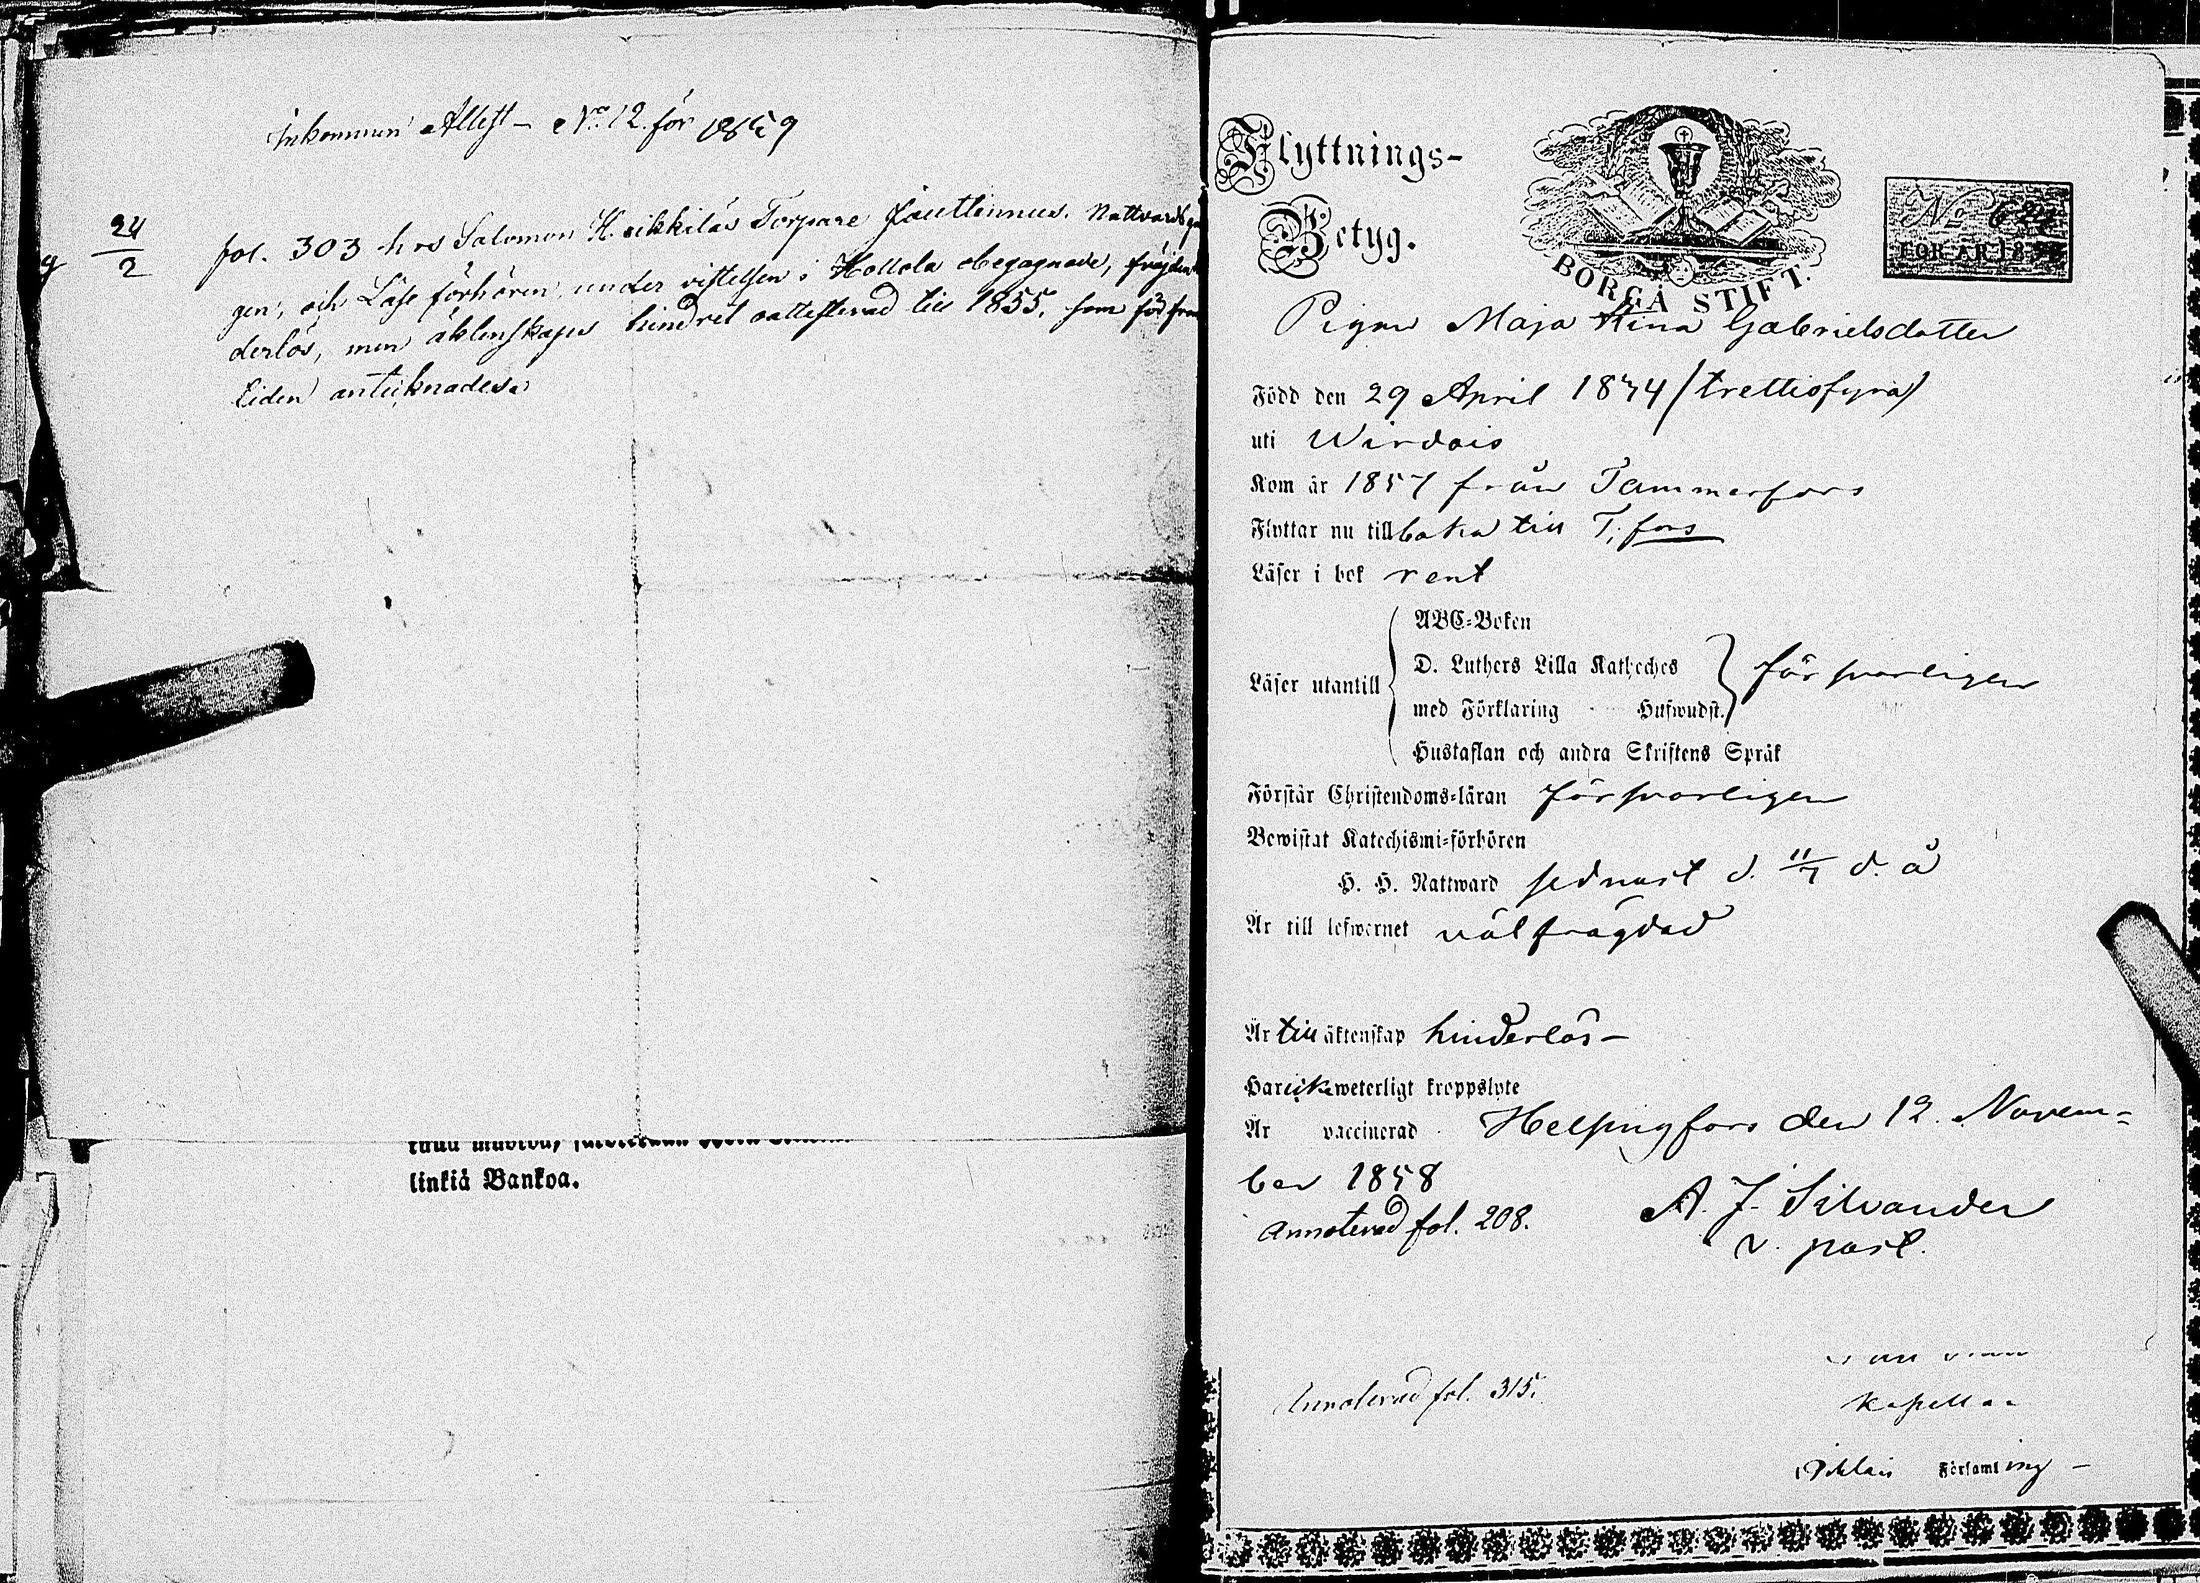 Inkommen Attest – No 12. för 1859
24/2 fol. 303 hos Salomon Heikkiläs Torpare Jauttinnus. Nattvardsgån
gen, och Läse förhören under vistelsen i Hollola obegagnade, fräjden
derlös, men äktenskaps hindret oattesterad till 1855. som för fram
tiden antecknades.
linkiä Bankoa.
Flyttnings-
Betyg.
BORGÅ STIFT.
No 624
FÖR ÅR 1858
Pigan Maja Stina Gabrielsdotter
Född den 29 April 1834 (trettiofyra)
uti Wirdois
Kom år 1857 från Tammerfors
Flyttar nu tillbaka till T:fors
Läser i bok rent
Läser utantill
ABC-Boken
D. Luthers Lilla Katheches
med Förklaring Hufwudst.
försvarligen
Hustaflan och andra Skriftens Språk
Förstår Christendoms-läran försvarligen
Bewistat Katechismi-förhören
H. H. Nattward sednast d. 11/7 d. å
Är till lefwernet välfrägdad
Är till äktenskap hinderlös –
Har icke weterligt kroppslyte
Är vaccinerad Helsingfors den 12. Novem=
ber 1858
A. J. Silvander
v. past.
Annoterad fol. 208.
Annoterad fol. 315.
Kapellan
Församling –